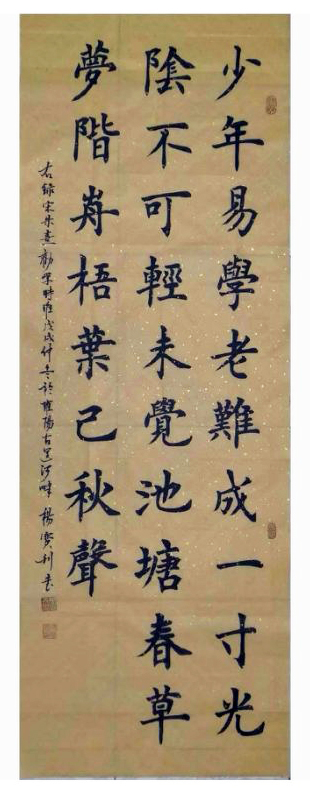 少年易學老難成一寸光
陰不可輕未覺池塘春草
夢階歬梧葉己秋聲
右錄宋朱熹勸學詩唯戊戌仲冬於睢陽古運河畔 楊寶利書